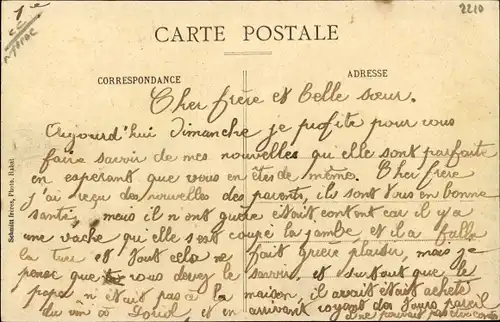 1e
cc
Maroc
2210
CARTE POSTALE
CORRESPONDANCE
ADRESSE
Cher frère et Belle sœur.
Aujourd'hui Dimanche je profite pour vous
faire savoir de mes nouvelles qu'elle sont parfaite
en espérant que vous en êtes de même. Cher frère
j'ai reçu des nouvelles des parents, ils sont tous en bonne
santé, mais il n ont guère était content car il y a
une vache qu'elle s'est coupé la jambe et il a falla
la tuer et tout cela ne fait guère plaisir, mais je
pense que vous devez le savoir, et surtout que le
papa n était pas à la maison, il avait était acheté
du vin à et en arrivant voyant des jours pareil
il ne pouvait pas être content
Schmitt frères, Photo. Rabat